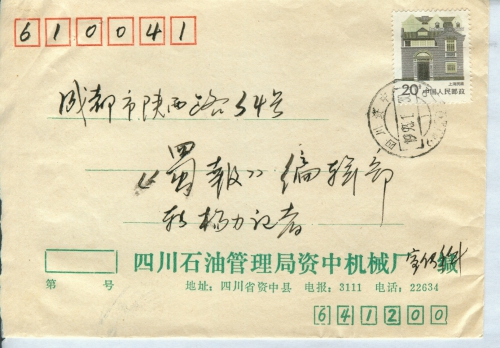 610041
20
上海民居
中国人民邮政
成都市陕西路54号
《蜀报》编辑部
转杨力记者
四川石油管理局资中机械厂
第 号
地址：四川省资中县 电报：3111 电话：22634
641200